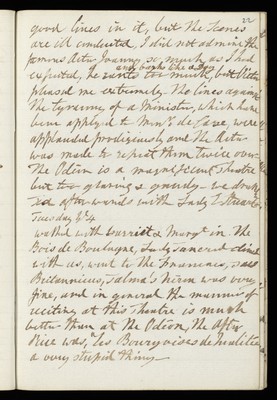 22
good lines in it, but the scenes
are ill conducted, I did not admire the
famous Actor Joanny so much as I had
expected, he rants too much, but Victor
pleased me extremely. The lines against
the tyranny of a Minister, which have
been applied to Monsr de Caze, were
applauded prodigiously and the Actor
was made to repeat them twice over
The Odéon is a magnificent Theatre
but too glaring & gaudy - we
afterwards with Lady E Stuart
Tuesday 4
walked with Harriet & Margt in the
Bois de Boulogne, Lady Tancred dined
with us, went to the Francais, saw
Britannicus, Talma's Néron was very
fine, and in general the manner of
reciting at this Theatre is much
better than at the Odéon, the After
Piece was, "Les Bourgeoises de qualité"
a very stupid thing